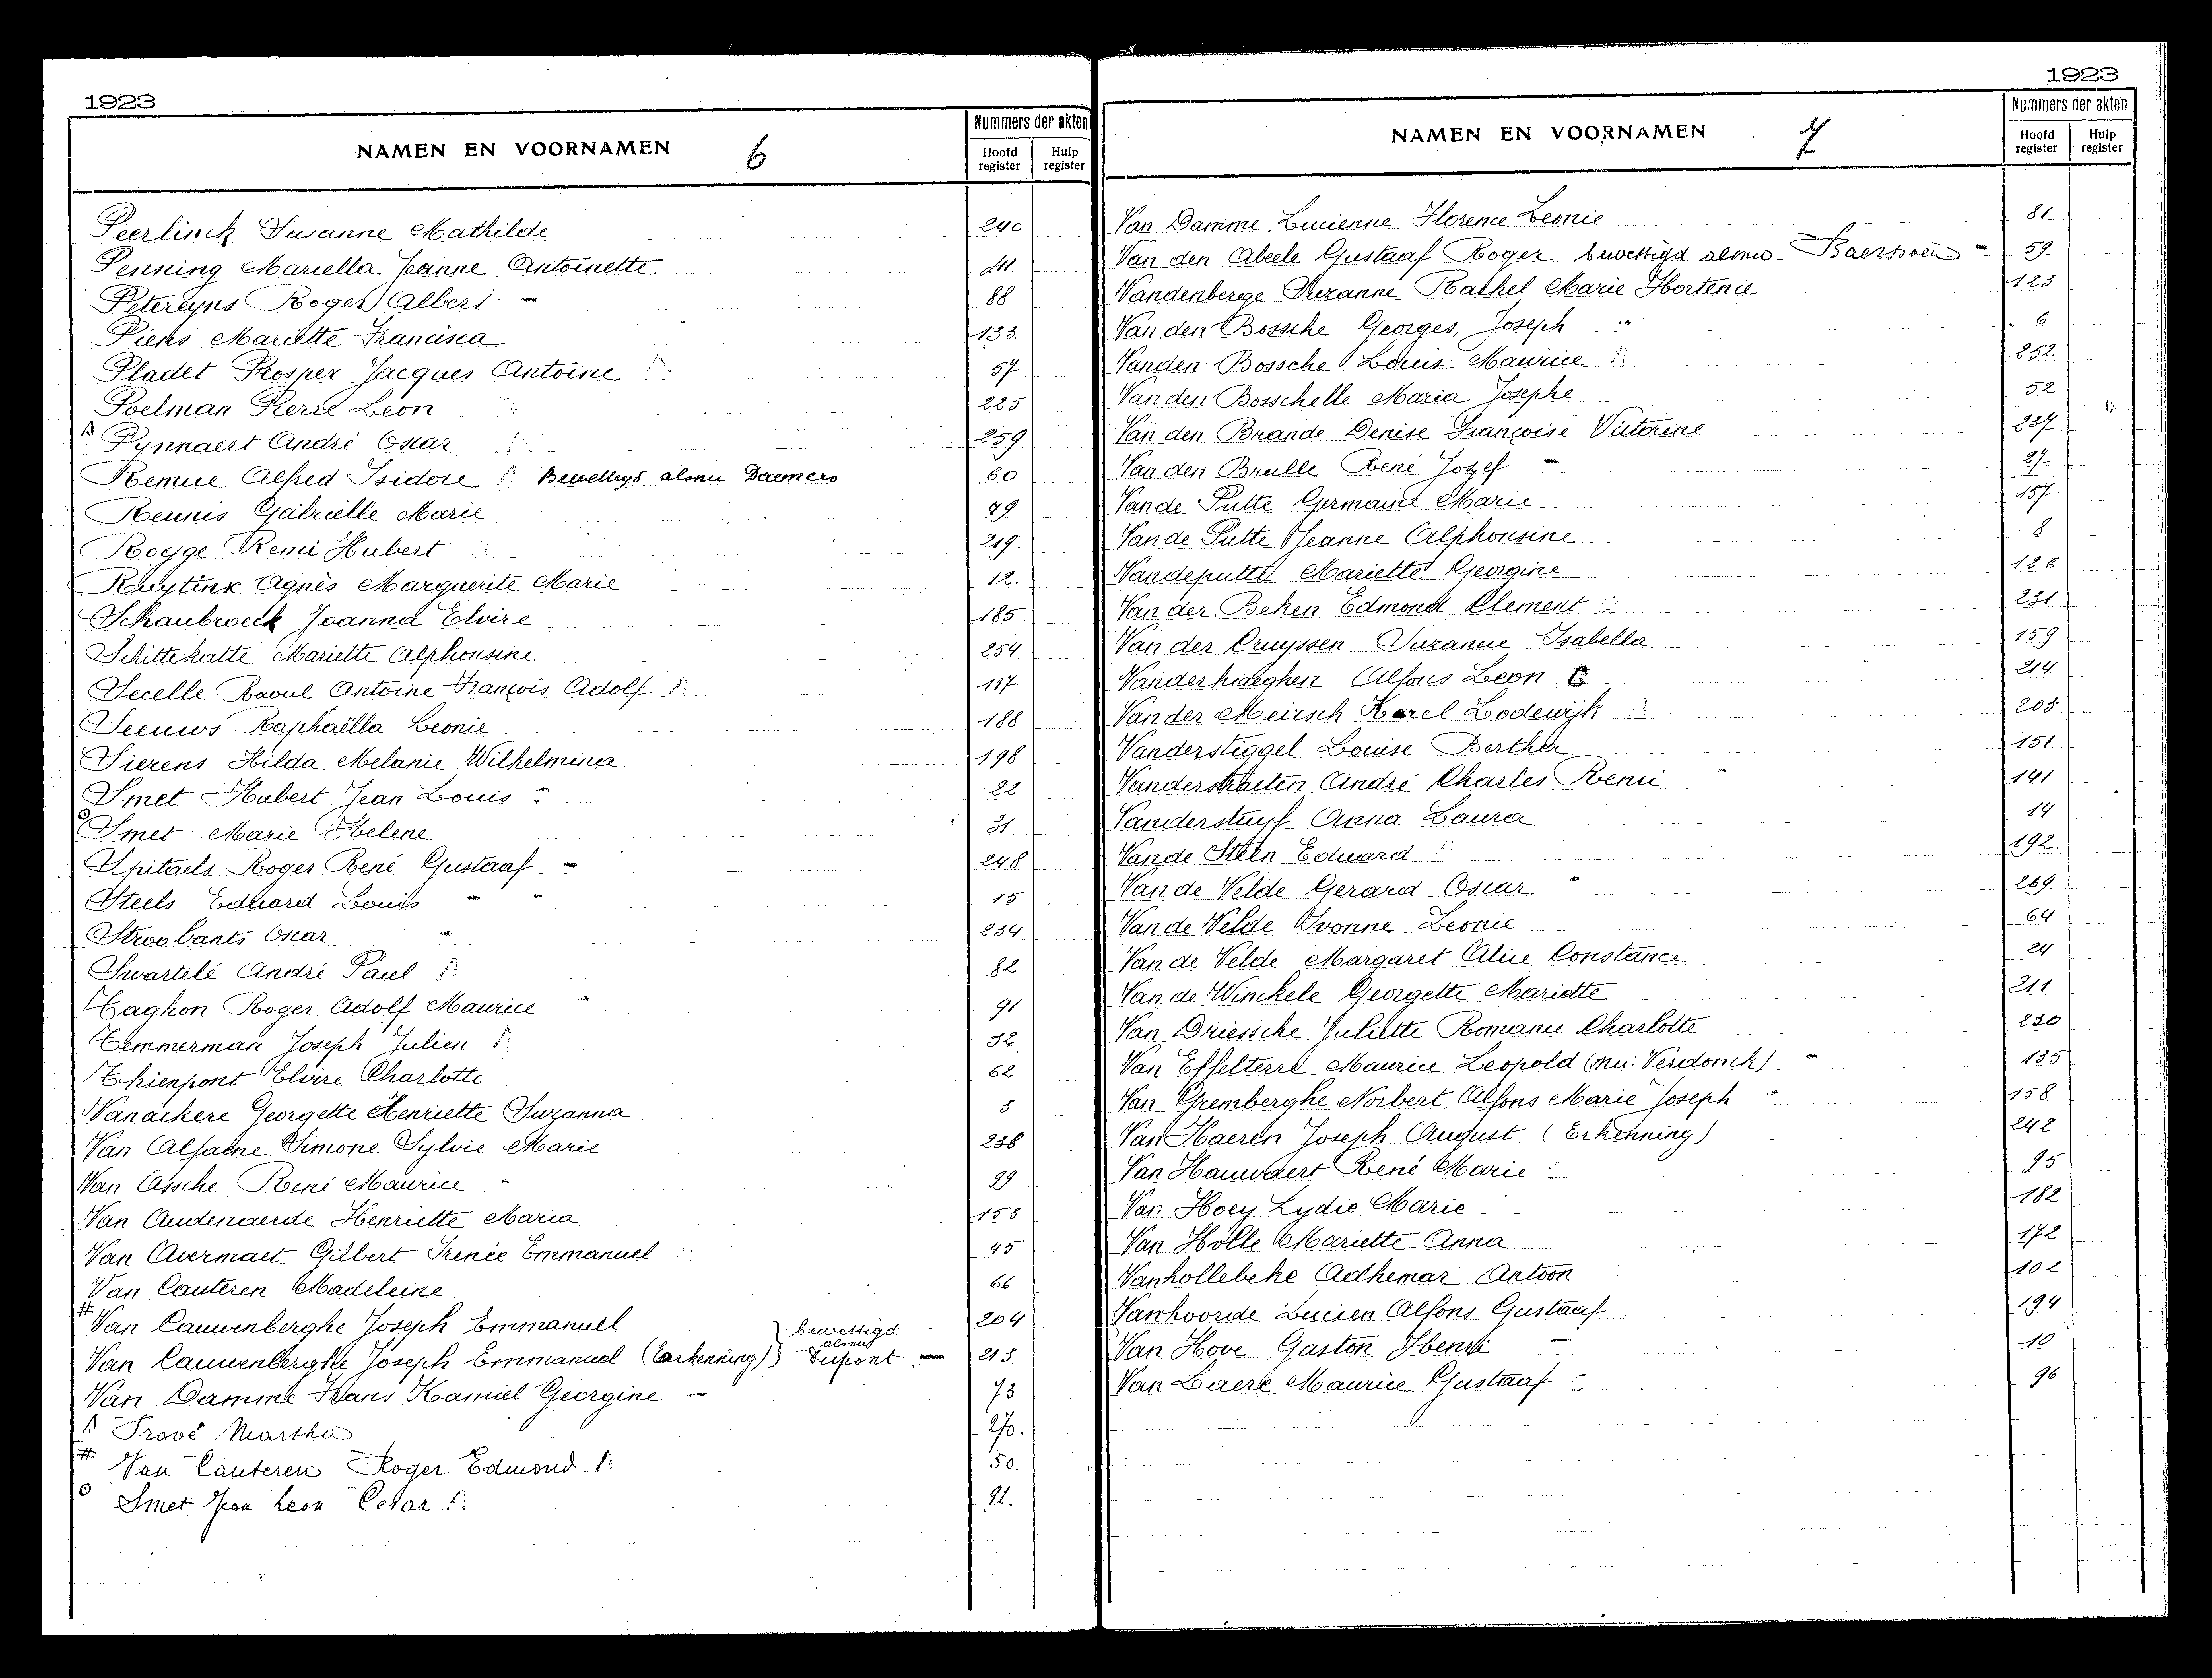 1923
NAMEN EN VOORNAMEN 6
Nummers der akten
Hoofd register Hulp register
Peerlinck Susanne Mathilde 240
Penning Mariella Jeanne Antoinette 111
Petereyns Roger Albert - 88
Piens Mariette Francisca 133
Pladet Prosper Jacques Antoine 57
Poelman Pierre Leon 225
Pynnaert André Oscar 259
Remue Alfred Isidore alsnu Daemers 60
Reunis Gabriëlle Marie 79
Rogge Remi Hubert 219.
Ruytinx Agnès Marguerite Marie 12.
Schaubroeck Joanna Elvire 185
Schittekatte Mariette Alphonsine 254
Secelle Raoul Antoine François Adolf 117
Seeuws Raphaëlla Leonie 188
Sierens Hilda Melanie Wilhelmina 198
Smet Hubert Jean Louis 22
° Smet Marie Helene 31
Spitaels Roger René Gustaaf - 248
Steels Eduard Louis - 15
Stroobants Oscar - 234
Swartelé André Paul 82
Taghon Roger Adolf Maurice 91
Temmerman Joseph Julien 32
Thienpont Elvire Charlotte 62
Vanackere Georgette Henriette Suzanna 5
Van Alsacne Simone Sylvie Marie 238
Van Assche René Maurice 99
Van Audenaerde Henriette Maria 155
Van Avermaet Gilbert Irenée Emmanuel 45
Van Cauteren Madeleine 66
# Van Cauwenberghe Joseph Emmanuel 204
Van Cauwenberghe Joseph Emmanuel (Erkenning) } bewettigd alsnu Dupont - 213
Van Damme Hans Kamiel Georgine - 73
Prové Martha 270.
# Van Cauteren Roger Edmond 50.
° Smet Jean Leon Cesar 92.
1923
NAMEN EN VOORNAMEN 7
Nummers der akten
Hoofd register Hulp register
Van Damme Lucienne Florence Leonie 81
Van den Abeele Gustaaf Roger bewettigd alsnu Baersoen - 59.
Vandenberge Suzanne Rachel Marie Hortence 123
Van den Bossche Georges, Joseph 6
Vanden Bossche Louis Maurice 252
Van den Bosschelle Maria Josephe 52
Van den Brande Denise Françoise Victorine 237
Van den Brulle René Jozef - 27
Vande Putte Germaine Marie 157
Vande Putte Jeanne Alphonsine 8
Vandeputte Mariette Georgine 126
Van der Beken Edmond Clement 231
Van der Cruyssen Suzanne Isabella 159
Vanderhaeghen Alfons Leon 214
Vander Meirsch Karel Lodewijk 203
Vanderstiggel Louise Bertha 151
Vanderstraeten André Charles Remi 141
Vanderstuyf Anna Laura 14
Vande Steen Eduard 192.
Van de Velde Gerard Oscar 269.
Van de Velde Yvonne Leonie 64
Van de Velde Margaret Alice Constance 24
Van de Winckele Georgette Mariette 211
Van Driessche Juliette Romanie Charlotte 230
Van Effelterre Maurice Leopold (nu: Verdonck) - 135
Van Gremberghe Norbert Alfons Marie Joseph 158
Van Haeren Joseph August (Erkenning) 242
Van Hauwaert René Marie 95
Van Hoey Lydie Marie 182
Van Holle Mariette Anna 172
Vanhollebeke Adhemar Antoon 102
Vanhoorde Lucien Alfons Gustaaf 194
Van Hove Gaston Henri - 10
Van Laere Maurice Gustaaf 96